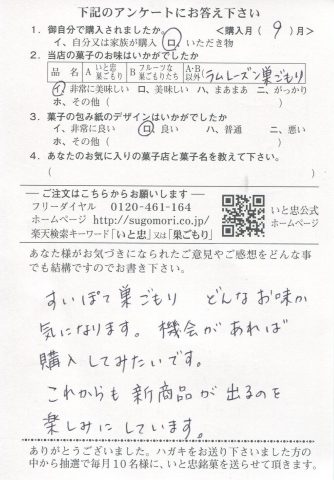 下記のアンケートにお答え下さい
1. 御自分で購入されましたか。 <購入月( 9 )月>
イ、自分又は家族が購入 ロ、いただき物
2. 当店の菓子のお味はいかがでしたか
品名 A いと忠巣ごもり B フルーツな巣ごもりたち A・B以外 (ラムレーズン巣ごもり)
イ、非常に美味しい ロ、美味しい ハ、まあまあ ニ、がっかり
ホ、その他( )
3. 菓子の包み紙のデザインはいかがでしたか
イ、非常に良い ロ、良い ハ、普通 ニ、悪い
ホ、その他( )
4. あなたのお気に入りの菓子店と菓子名を教えて下さい。
( )
―ご注文はこちらからお願いします―
フリーダイヤル 0120-461-164
ホームページ http://sugomori.co.jp/
楽天検索キーワード「いと忠」又は「巣ごもり」
いと忠公式
ホームページ
あなた様がお気づきになられたご意見やご感想をどんな事
でも結構ですのでお書き下さい。
すいぽて巣ごもり どんなお味か
気になります。機会があれば
購入してみたいです。
これからも新商品が出るのを
楽しみにしています。
ありがとうございました。ハガキをお送り下さいました方の
中から抽選で毎月10名様に、いと忠銘菓を送らせて頂きます。